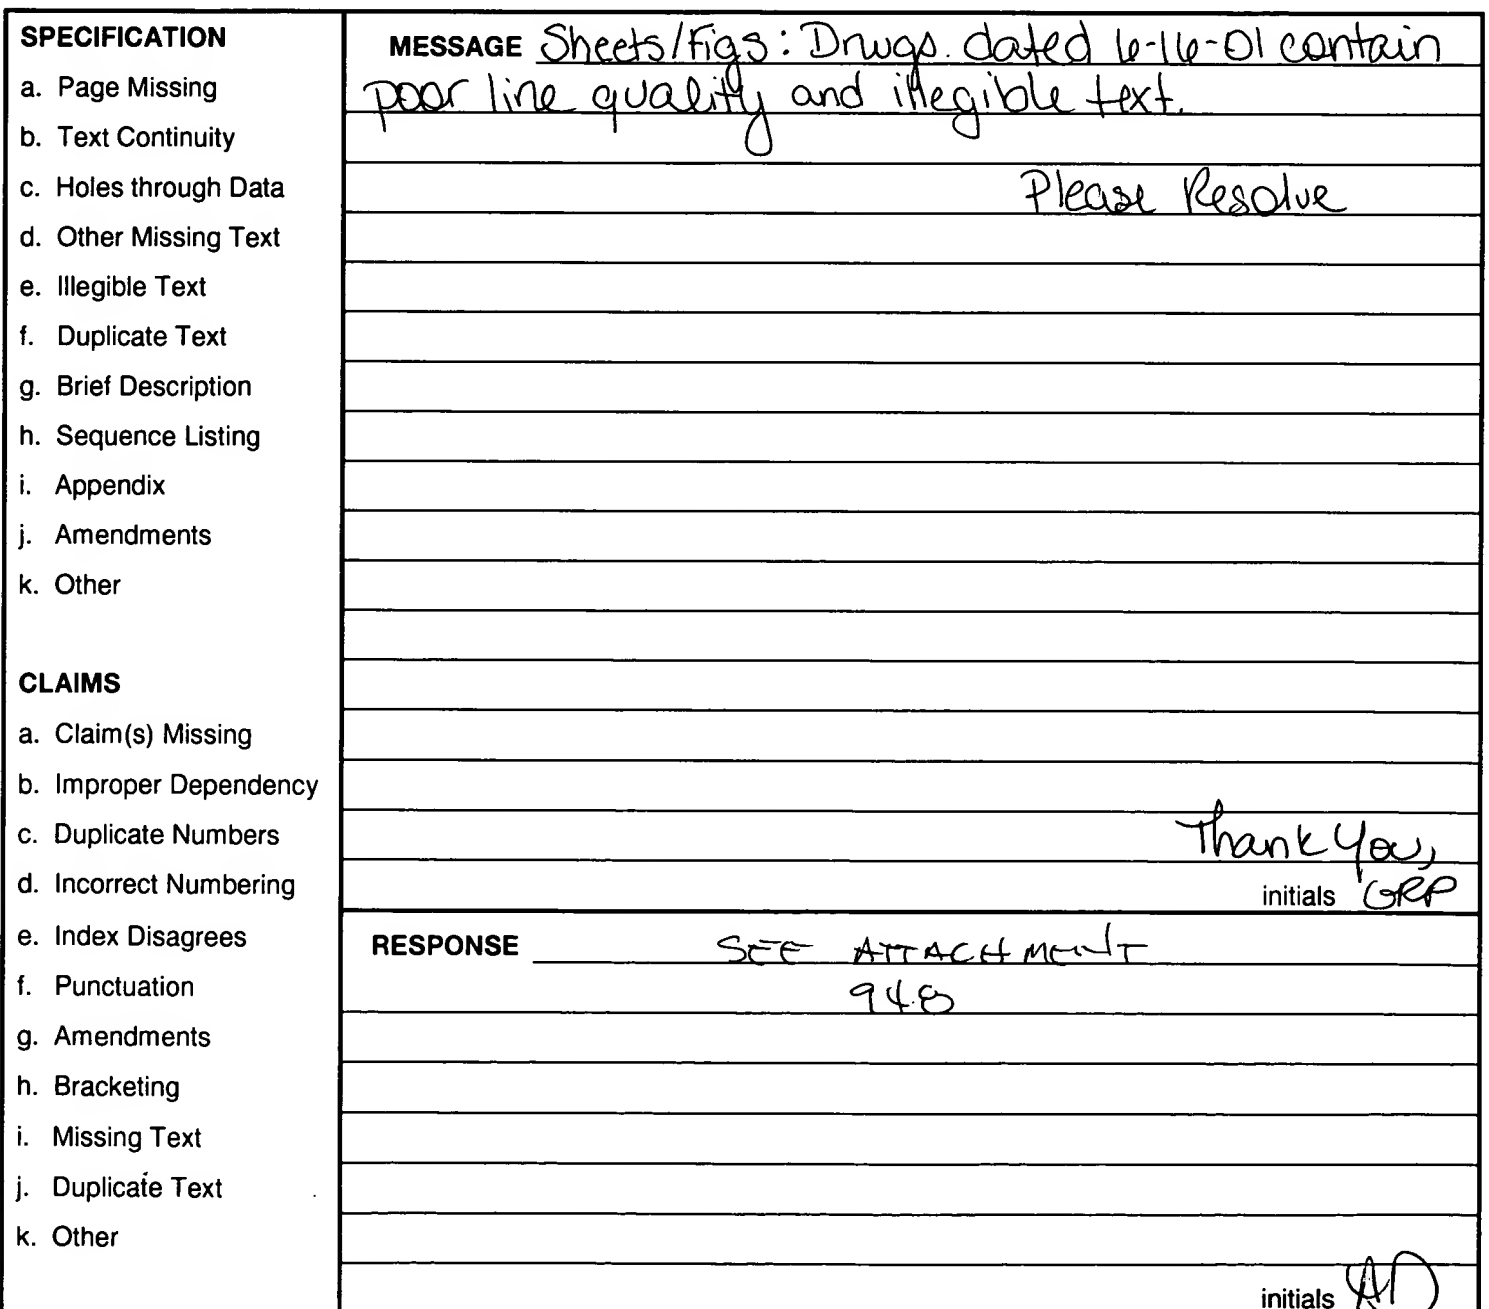 SPECIFICATION
a. Page Missing
b. Text Continuity
c. Holes through Data
d. Other Missing Text
e. Illegible Text
f. Duplicate Text
g. Brief Description
h. Sequence Listing
i. Appendix
j. Amendments
k. Other
CLAIMS
a. Claim(s) Missing
b. Improper Dependency
c. Duplicate Numbers
d. Incorrect Numbering
e. Index Disagrees
f. Punctuation
g. Amendments
h. Bracketing
i. Missing Text
j. Duplicate Text
k. Other
MESSAGE Sheets/Figs: Drwgs. dated 6-16-01 contain
poor line quality and illegible text.
Please Resolve
Thank You,
initials GRP
RESPONSE SEE ATTACHMENT
948
initials AD